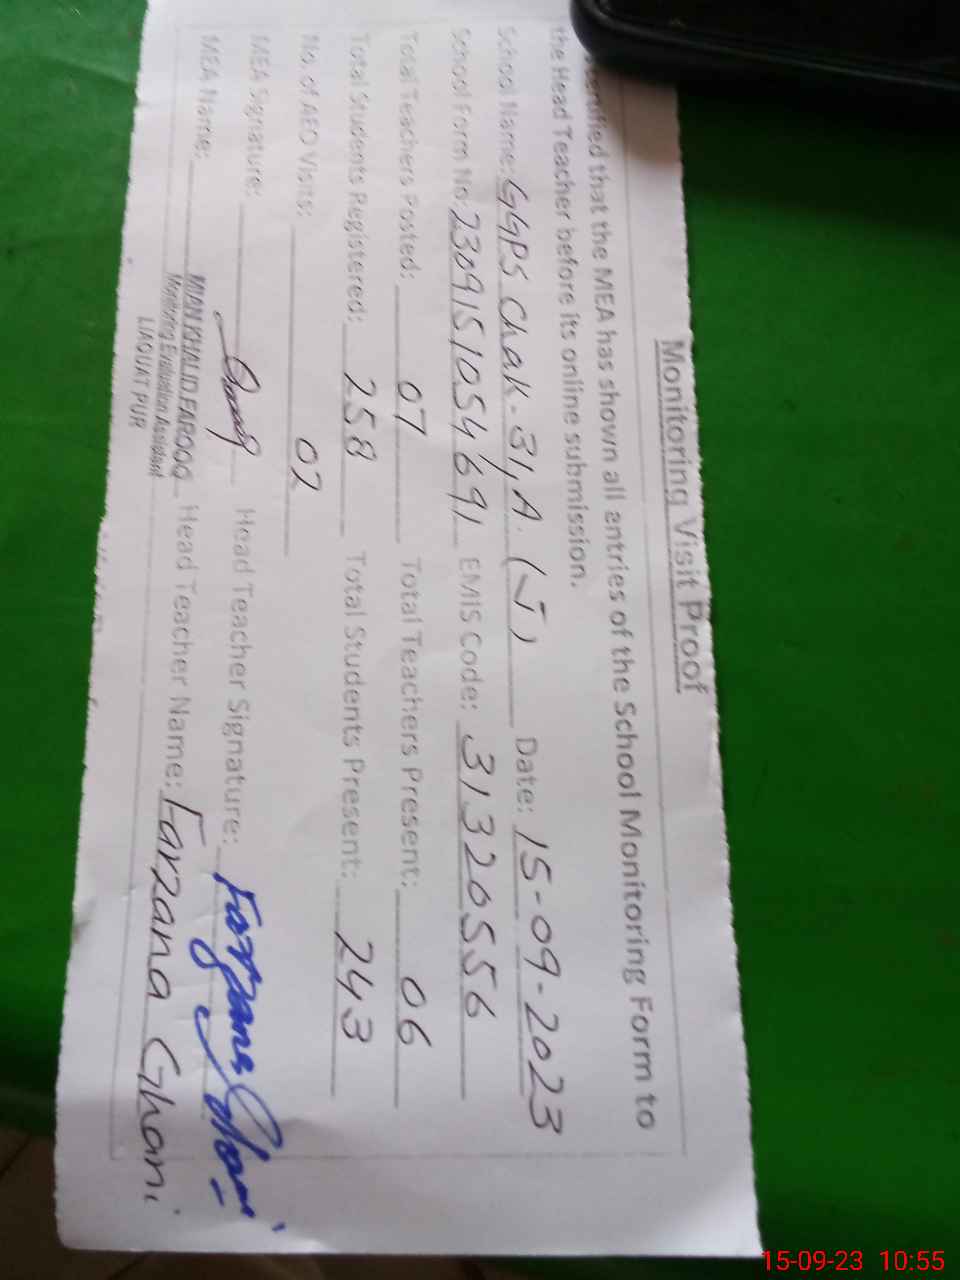 Monitoring Visit Proof
certified that the MEA has shown all entries of the School Monitoring Form to
the Head Teacher before its online submission.
School Name: GGPS Chak-31,A.(J) Date: 15-09-2023
School Form No: 2309151054691 EMIS Code: 31320556
Total Teachers Posted: 07 Total Teachers Present: 06
Total Students Registered: 258 Total Students Present: 243
No. of AEO Visits: 02
MEA Signature: Head Teacher Signature: Farzana Ghani
MEA Name: MIAN KHALID FAROOQ Head Teacher Name: Farzana Ghani
Monitoring Evaluation Assistant
LIAQUAT PUR
15-09-23 10:55